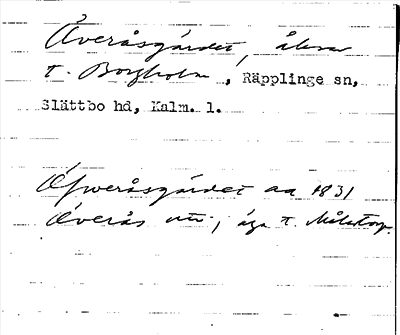 Överåsgärdet, åkrar
t. Borgholm, Räpplinge sn,
Slättbo hd, Kalm. l.
Öfweråsgärdet aa 1831
Överås utr., äga t.